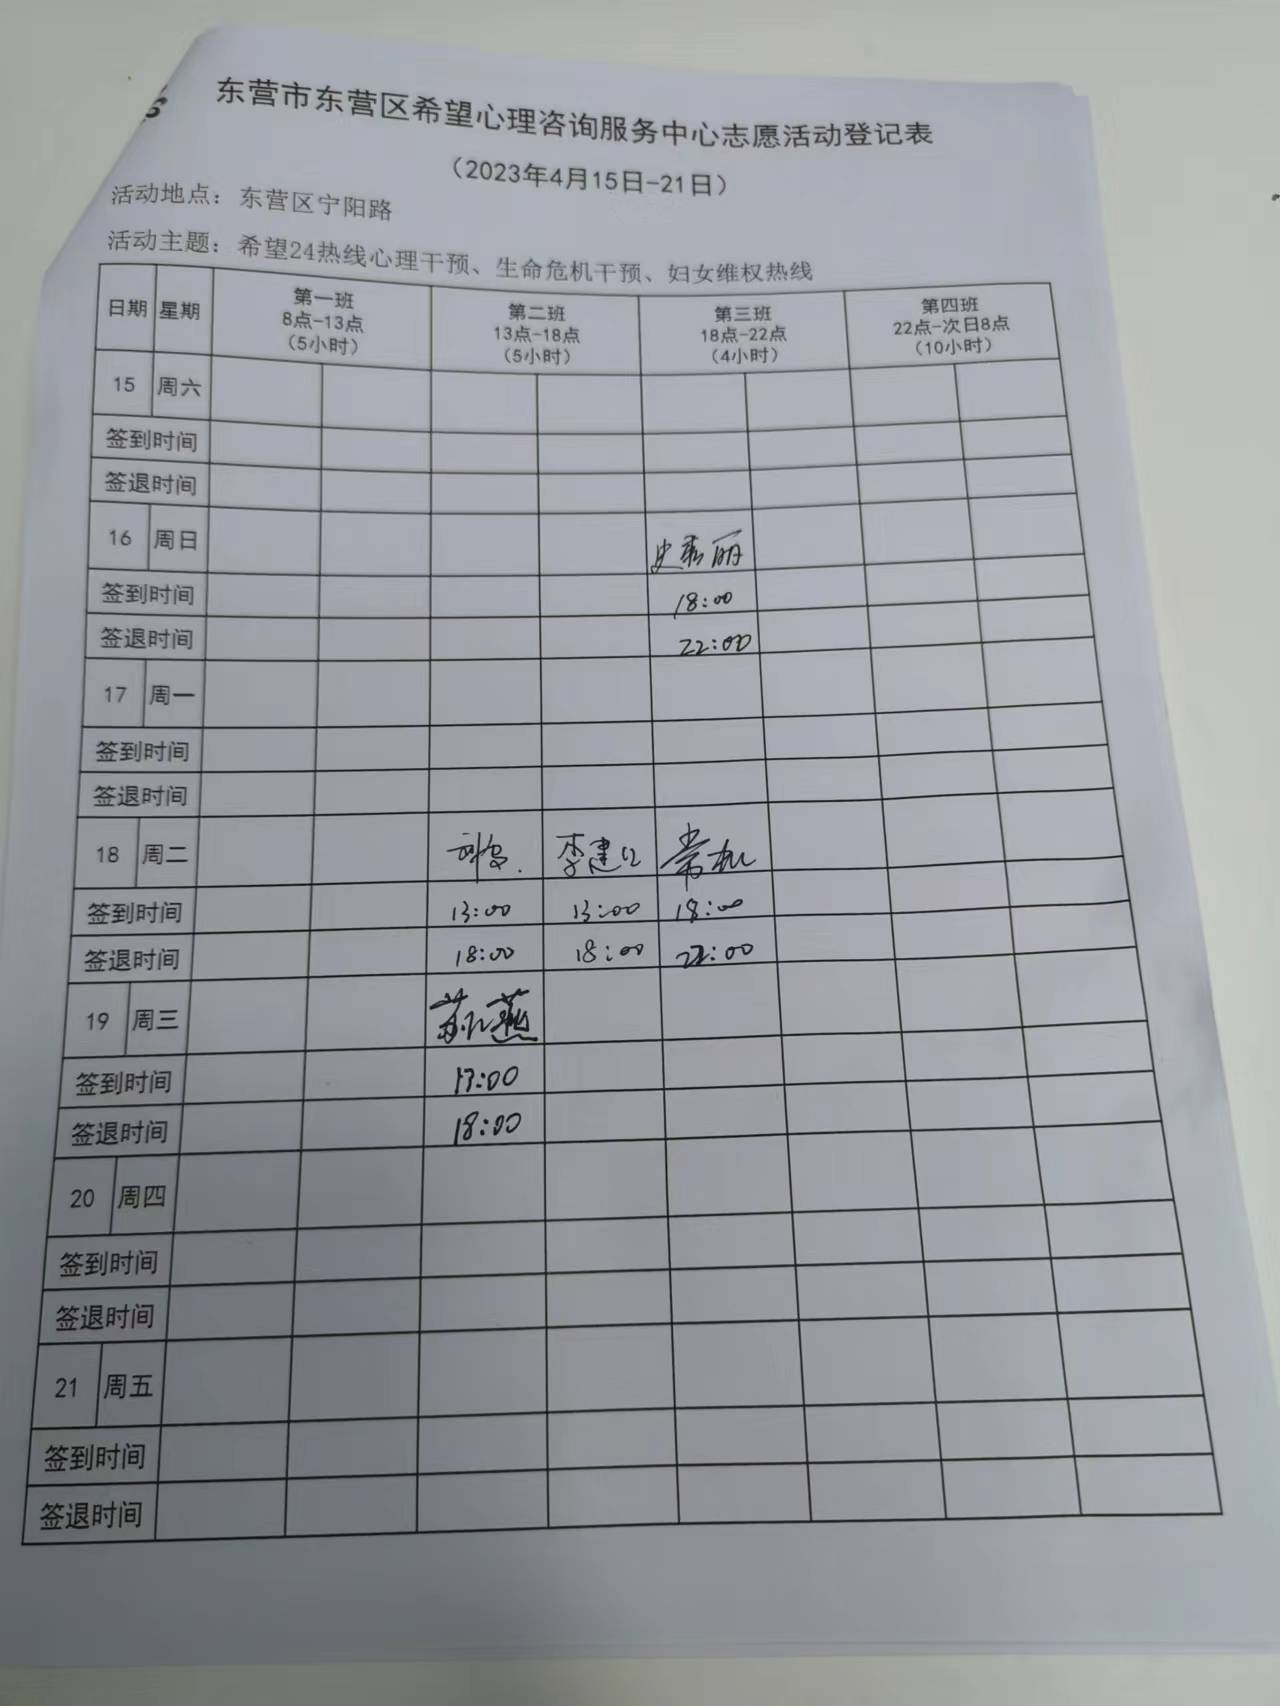 东营市东营区希望心理咨询服务中心志愿活动登记表
（2023年4月15日-21日）
活动地点：东营区宁阳路
活动主题：希望24热线心理干预、生命危机干预、妇女维权热线
日期 星期 第一班 第二班 第三班 第四班
8点-13点 13点-18点 18点-22点 22点-次日8点
（5小时） （5小时） （4小时） （10小时）
15 周六
签到时间
签退时间
16 周日 史秀丽
签到时间 18:00
签退时间 22:00
17 周一
签到时间
签退时间
18 周二 李建
签到时间 13:00 13:00 18:00
签退时间 18:00 18:00 22:00
19 周三 苏 燕
签到时间 13:00
签退时间 18:00
20 周四
签到时间
签退时间
21 周五
签到时间
签退时间